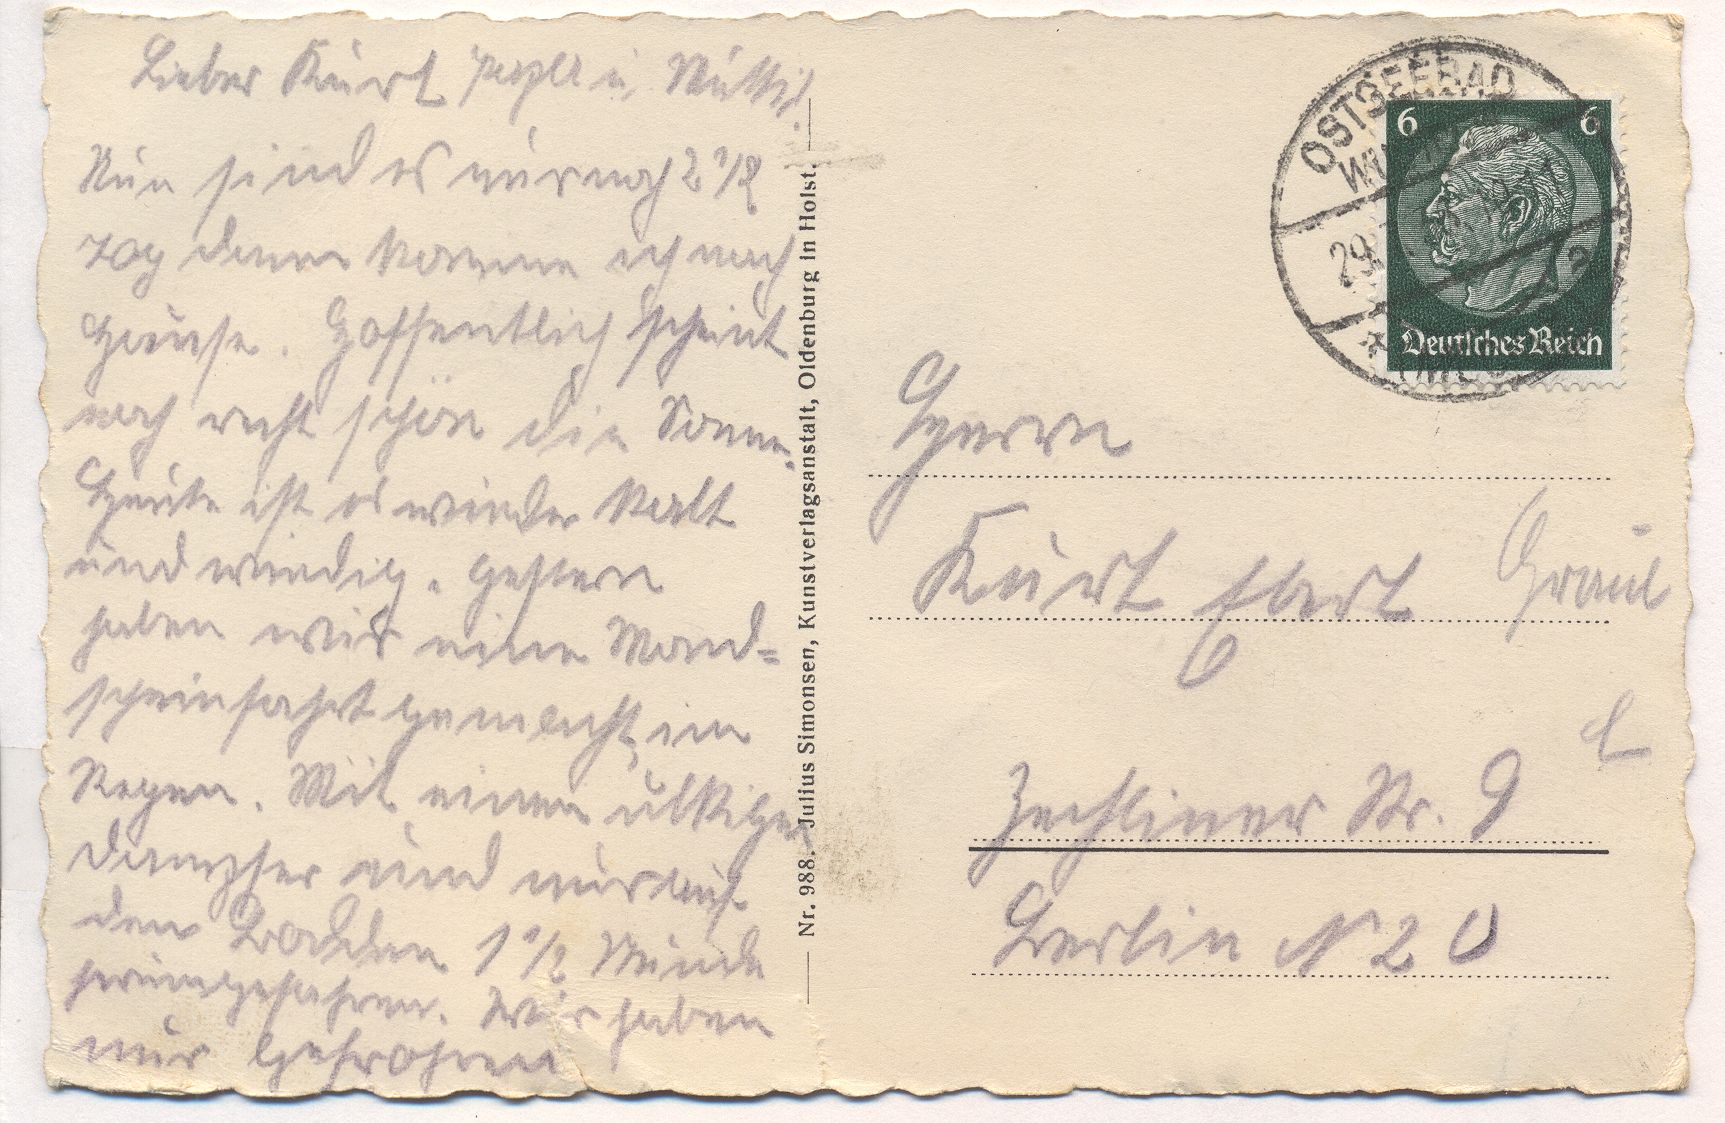 Lieber Kurt Papa u. Mutti!
Nun sind es nur noch 2 1/2
Tag dann komme ich nach
Hause. Hoffentlich scheint
noch recht schön die Sonne.
Heute ist es wieder kalt
und windig. Gestern
haben wir eine Mond=
scheinfahrt gemacht, im
Regen. Mit einem ulkigen
Dampfer und nur auf
den Bodden 1 1/2 Stunde
herumgefahren. Wir haben
nur gefrohren
Nr. 988. Julius Simonsen, Kunstverlagsanstalt, Oldenburg in Holst.
OSTSEEBAD
29.
6 6
Deutsches Reich
Herrn
Kurt Ebert
Zechliner Str. 9
Berlin N 20